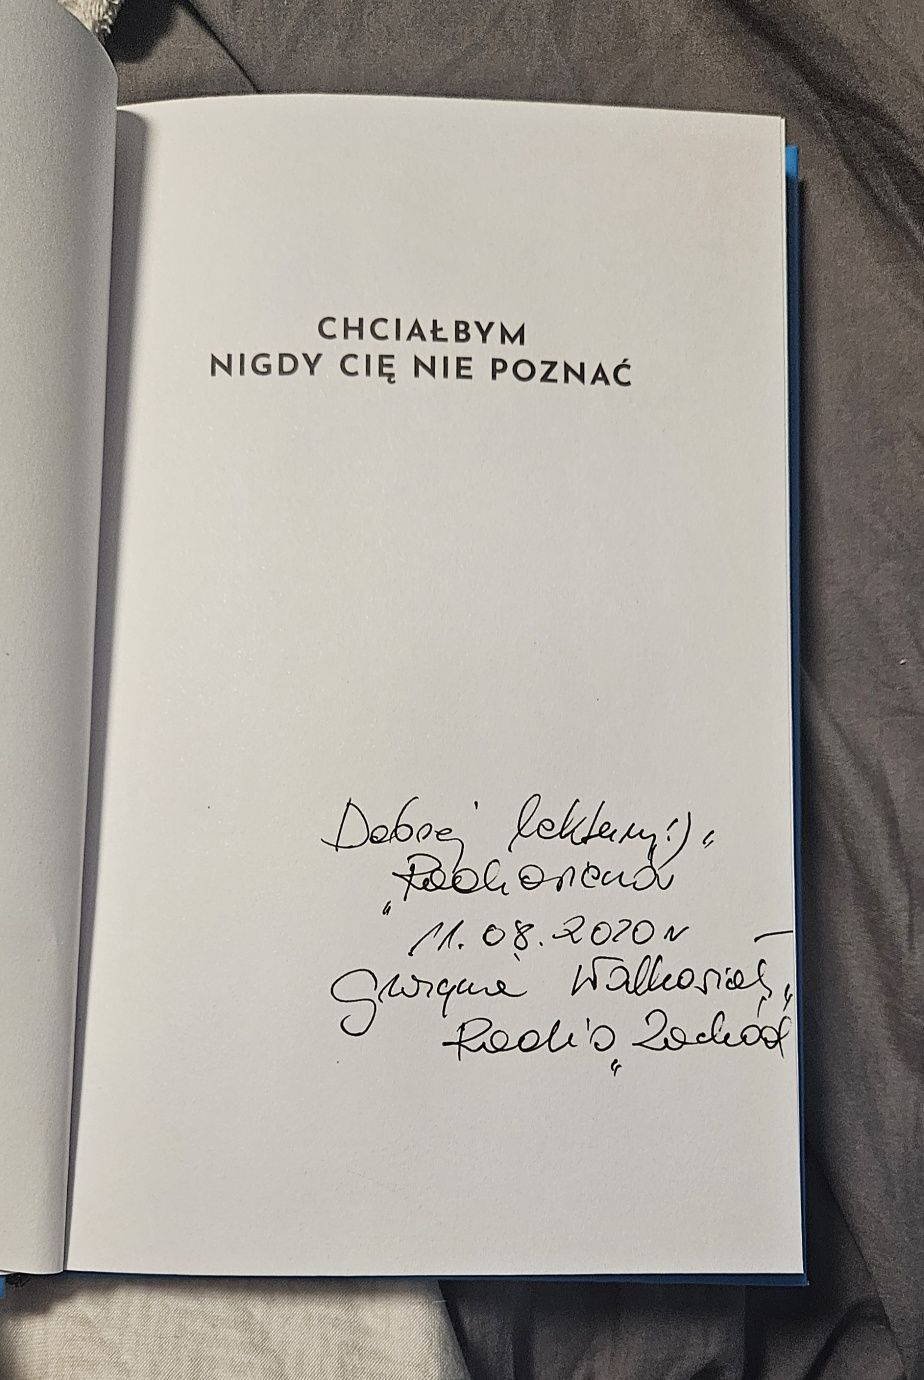 CHCIAŁBYM
NIGDY CIĘ NIE POZNAĆ
Dobrej lektury :)
11.08.2020 r
"Radio Zachód"